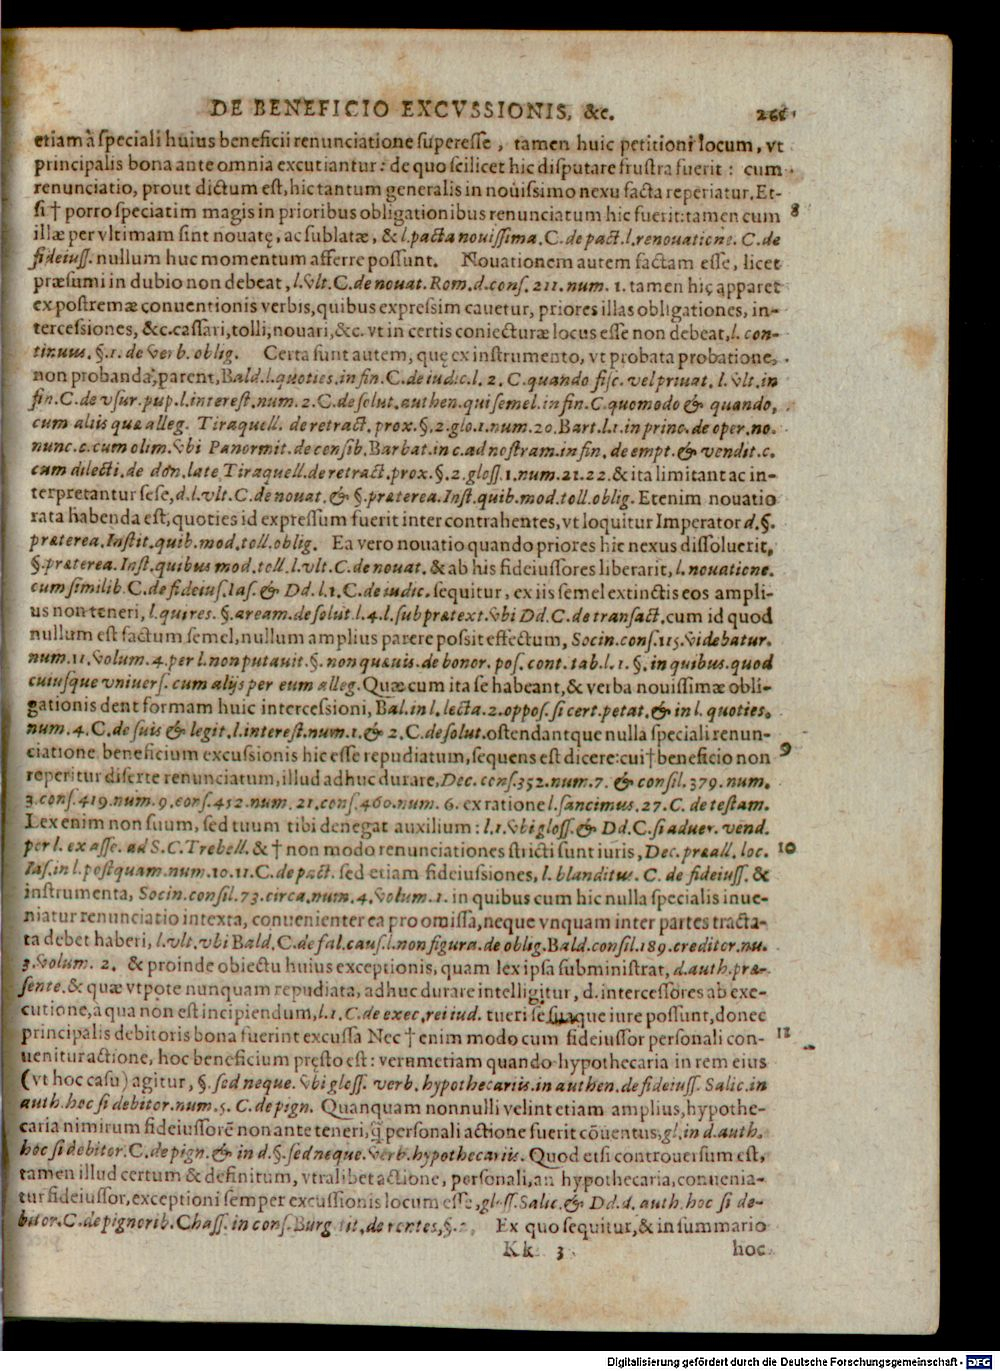 DE BENEFICIO EXCVSSIONIS, &c.
etiam à speciali huius beneficii renunciatione superesse, tamen huic petitioni locum, vt
principalis bona ante omnia excutiantur: de quo scilicet hic disputare frustra fuerit: cum
renunciatio, prout dictum est, hic tantum generalis in nouissimo nexu facta reperiatur. Et-
si † porro speciatim magis in prioribus obligationibus renunciatum hic fuerit: tamen cum 8
illæ per vltimam sint nouatę, ac sublatæ, & l. pacta nouissima. C. de pact. l. renouatione. C. de
fideiuss. nullum huc momentum afferre possunt. Nouationem autem factam esse, licet
præsumi in dubio non debeat, l. vlt. C. de nouat. Rom. d. cons. 211. num. 1. tamen hic apparet
ex postremæ conuentionis verbis, quibus expressim cauetur, priores illas obligationes, in-
tercessiones, &c. cassari, tolli, nouari, &c. vt in certis coniecturæ locus esse non debeat, l. con-
tinuus. §. 1. de verb. oblig. Certa sunt autem, quę ex instrumento, vt probata probatione,
non probanda, parent, Bald. l. quoties. in fin. C. de iudic. l. 2. C. quando fisc. vel priuat. l. vlt. in
fin. C. de vsur. pup. l. interest. num. 2. C. de solut. authen. qui semel. in fin. C. quomodo & quando,
cum aliis quæ alleg. Tiraquell. de retract. prox. §. 2. glo. 1. num. 20. Bart. l. 1. in princ. de oper. no.
nunc. c. cum olim. vbi Panormit. de censib. Barbat. in c. ad nostram. in fin. de empt. & vendit. c.
cum dilecti. de don. late Tiraquell. de retract. prox. §. 2. gloss. 1. num. 21. 22. & ita limitant ac in-
terpretantur sese, d. l. vlt. C. de nouat. & §. præterea. Inst. quib. mod. toll. oblig. Etenim nouatio
rata habenda est, quoties id expressum fuerit inter contrahentes, vt loquitur Imperator d. §.
præterea. Instit. quib. mod. toll. oblig. Ea vero nouatio quando priores hic nexus dissoluerit,
§. præterea. Inst. quibus mod. toll. l. vlt. C. de nouat. & ab his fideiussores liberarit, l. nouatione.
cum similib. C. de fideius. Ias. & Dd. l. 1. C. de iudic. sequitur, ex iis semel extinctis eos ampli-
us non teneri, l. qui res. §. aream. de solut. l. 4. l. sub prætext. vbi Dd. C. de transact. cum id quod
nullum est factum semel, nullum amplius parere possit effectum, Socin. cons. 115. videbatur.
num. 11. volum. 4. per l. non putauit. §. non quæuis. de bonor. pos. cont. tab. l. 1. §. in quibus. quod
cuiusque vniuers. cum alijs per eum alleg. Quæ cum ita se habeant, & verba nouissimæ obli-
gationis dent formam huic intercessioni, Bal. in l. lecta. 2. oppos. si cert. petat. & in l. quoties.
num. 4. C. de suis & legit. l. interest. num. 1. & 2. C. de solut. ostendantque nulla speciali renun-
ciatione beneficium excussionis hic esse repudiatum, sequens est dicere: cui † beneficio non 9
reperitur diserte renunciatum, illud adhuc durare, Dec. cons. 352. num. 7. & consil. 379. num.
3. cons. 419. num. 9. cons. 452. num. 21. cons. 460. num. 6. ex ratione l. sancimus. 27. C. de testam.
Lex enim non suum, sed tuum tibi denegat auxilium: l. 1. vbi gloss. & Dd. C. si aduer. vend.
per l. ex asse. ad S. C. Trebell. & † non modo renunciationes stricti sunt iuris, Dec. præall. loc. 10
Ias. in l. postquam. num. 10. 11. C. de pact. sed etiam fideiussiones, l. blanditus. C. de fideiuss. &
instrumenta, Socin. consil. 73. circa. num. 4. volum. 1. in quibus cum hic nulla specialis inue-
niatur renunciatio intexta, conuenienter ea pro omissa, neque vnquam inter partes tracta-
ta debet haberi, l. vlt. vbi Bald. C. de fal. caus. l. non figura. de oblig. Bald. consil. 189. creditor. nu.
3. volum. 2. & proinde obiectu huius exceptionis, quam lex ipsa subministrat, d. auth. præ-
sente. & quæ vtpote nunquam repudiata, adhuc durare intelligitur, d. intercessores ab exe-
cutione, à qua non est incipiendum, l. 1. C. de exec. rei iud. tueri se suaque iure possunt, donec
principalis debitoris bona fuerint excussa Nec † enim modo cum fideiussor personali con-
uenitur actione, hoc beneficium pręsto est: verumetiam quando hypothecaria in rem eius
(vt hoc casu) agitur, §. sed neque. vbi gloss. verb. hypothecariis. in authen. de fideiuss. Salic. in
auth. hoc si debitor. num. 5. C. de pign. Quanquam nonnulli velint etiam amplius, hypothe-
caria nimirum fideiussorē non ante teneri, q̃ personali actione fuerit cōuentus, gl. in d. auth.
hoc si debitor. C. de pign. & in d. §. sed neque. verb. hypothecariis. Quod etsi controuersum est,
tamen illud certum & definitum, vtralibet actione, personali, an hypothecaria, conuenia-
tur fideiussor, exceptioni semper excussionis locum esse, gloss. Salic. & Dd. d. auth. hoc si de-
bitor. C. de pignorib. Chass. in cons. Burg. tit. de rentes, §. 2. Ex quo sequitur, & in summario
Kk 3 hoc
Digitalisierung gefördert durch die Deutsche Forschungsgemeinschaft - DFG